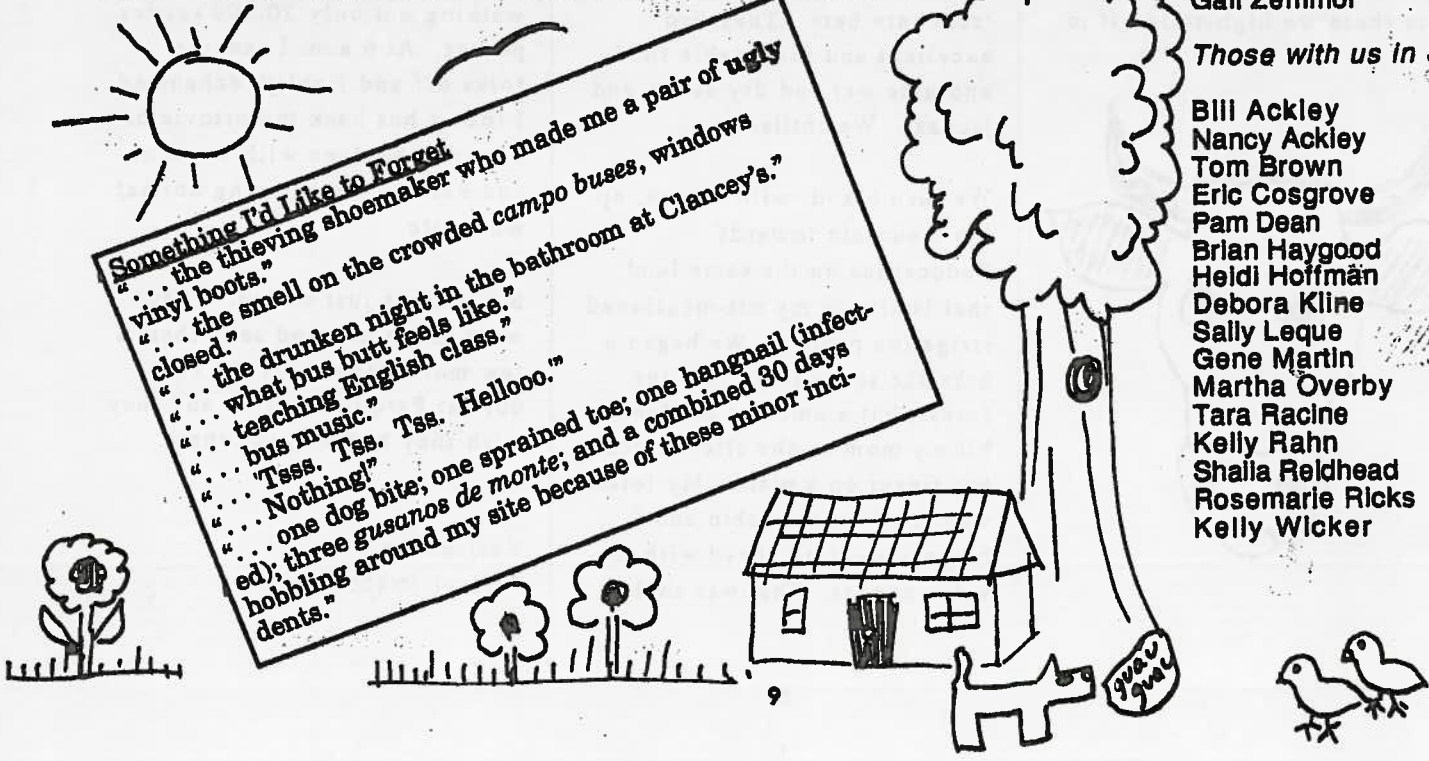 Something I'd Like to Forget
“. . . the thieving shoemaker who made me a pair of ugly
vinyl boots.”
“. . . the smell on the crowded campo buses, windows
closed.”
“. . . the drunken night in the bathroom at Clancey's.”
“. . . what bus butt feels like.”
“. . . teaching English class.”
“. . . bus music.”
“. . . 'Tsss. Tss. Tss. Hellooo.'”
“. . . Nothing!”
“. . . one dog bite; one sprained toe; one hangnail (infect-
ed); three gusanos de monte; and a combined 30 days
hobbling around my site because of these minor inci-
dents.”
guau
guau
9
Those with us in
Bill Ackley
Nancy Ackley
Tom Brown
Eric Cosgrove
Pam Dean
Brian Haygood
Heidi Hoffmän
Debora Kline
Sally Leque
Gene Martin
Martha Overby
Tara Racine
Kelly Rahn
Shaila Reidhead
Rosemarie Ricks
Kelly Wicker